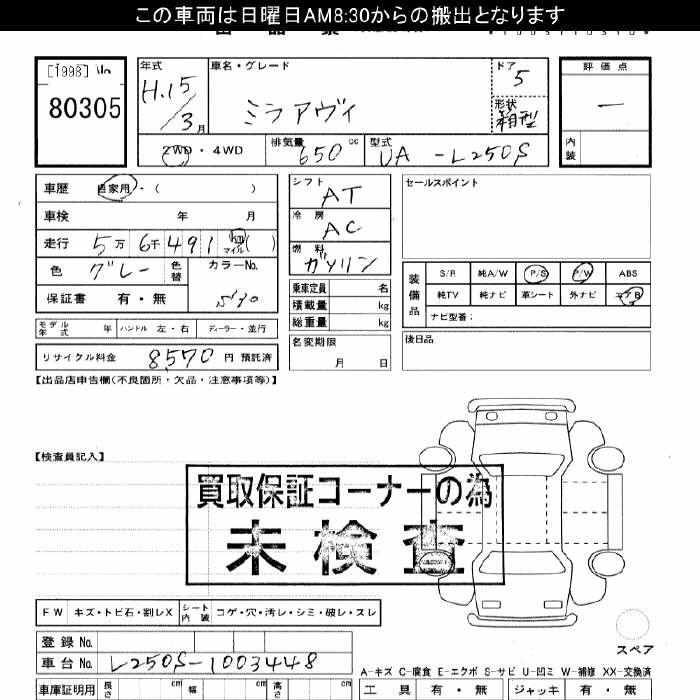 この車両は日曜日AM8:30からの搬出となります
[1998]
80305
年式
H.15/3月
車名・グレード
ミラアヴィ
ドア
5
形状
箱型
評価点
―
内装
2WD・4WD
排気量
650cc
型式
UA-L250S
車歴 自家用・( )
車検 年 月
走行 5万6千491 km マイル ( )
色 グレー 色替 カラーNo.
保証書 有・無
シフト
AT
冷房
AC
燃料
ガソリン
乗車定員 名
積載量 kg
総重量 kg
名変期限
月 日
セールスポイント
装備品
S/R 純A/W P/S P/W ABS
純TV 純ナビ 革シート 外ナビ エアB
ナビ型番:
後日品
モデル年式 年 ハンドル 左・右 ディーラー・並行
リサイクル料金 8570 円 預託済
【出品店申告欄(不良箇所・欠品・注意事項等)】
【検査員記入】
買取保証コーナーの為
未検査
FW キズ・トビ石・割レX シート内装 コゲ・穴・汚レ・シミ・破レ・スレ
スペア
登録No.
車台No. L250S-1003448
A-キズ C-腐食 E-エクボ S-サビ U-凹ミ W-補修 XX-交換済
車庫証明用 長さ cm 幅 cm 高さ cm
工具 有・無 ジャッキ 有・無